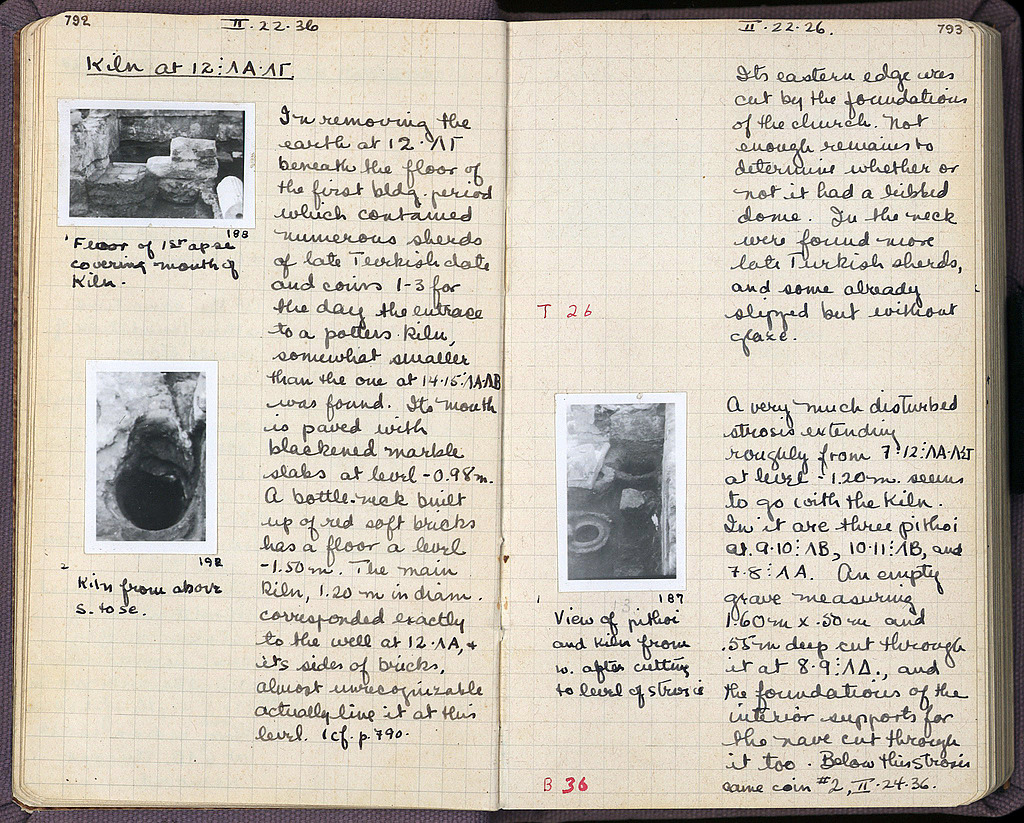 792
II·22·36
Kiln at 12:ΛΑ·ΛΓ
188
1 Floor of 1st apse
covering mouth of
kiln.
192
2
Kiln from above
S. to SE.
In removing the
earth at 12·ΛΓ
beneath the floor of
the first bldg. period
which contained
numerous sherds
of late Turkish date
and coins 1-3 for
the day the entrace
to a potters kiln,
somewhat smaller
than the one at 14·15:ΛΑ·ΛΒ
was found. Its mouth
is paved with
blackened marble
slabs at level -0.98m.
A bottle-neck built
up of red soft bricks
has a floor a level
-1.50m. The main
kiln, 1.20 m in diam.
corresponded exactly
to the well at 12·ΛΑ, +
its sides of bricks,
almost unrecognizable
actually line it at this
level. (cf. p. 790.
II·22·26.
793
T 26
1
187
View of pithoi
and kiln from
W. after cutting
to level of strosis
B 36
Its eastern edge was
cut by the foundations
of the church. Not
enough remains to
determine whether or
not it had a ribbed
dome. In the neck
were found more
late Turkish sherds,
and some already
slipped but without
glaze.
A very much disturbed
strosis extending
roughly from 7·12:ΛΑ·
at level -1.20m. seems
to go with the kiln.
In it are three pithoi
at 9·10:ΛΒ, 10·11:ΛΒ, and
7·8:ΛΑ. An empty
grave measuring
1.60m x .50m and
.55m deep cut through
it at 8·9:ΛΔ., and
the foundations of the
interior supports for
the nave cut through
it too. Below this strosis
came coin #2, II·24·36.